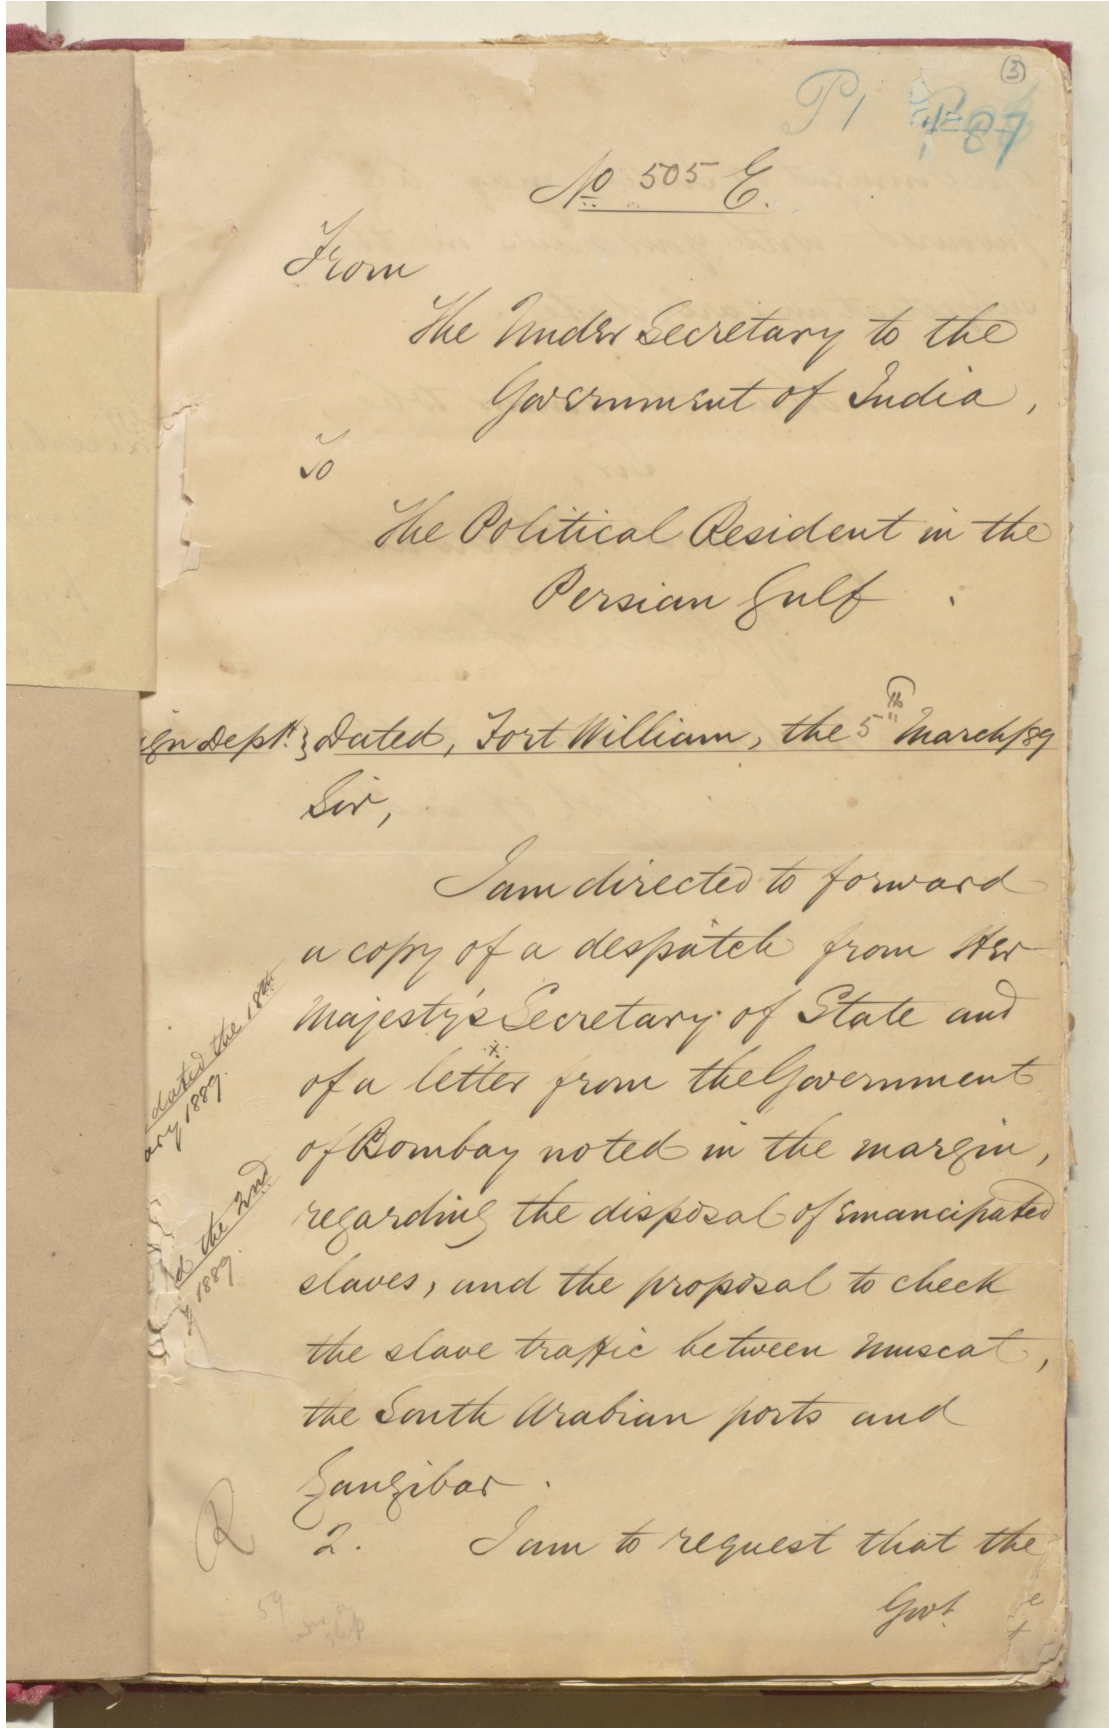 3
P1 87
No 505 E.
From
The Under Secretary to the
Government of India,
To
The Political Resident in the
Persian Gulf.
ign Dept. } Dated, Fort William, the 5th March/89
Sir,
I am directed to forward
a copy of a despatch from Her
Majesty's Secretary of State and
x
of a letter from the Government
of Bombay noted in the margin,
dated the 18th
ary 1889.
d the 2nd
y 1889.
regarding the disposal of emancipated
slaves, and the proposal to check
the slave traffic between Muscat,
the South Arabian ports and
Zanzibar.
R
2. I am to request that the
Govt.